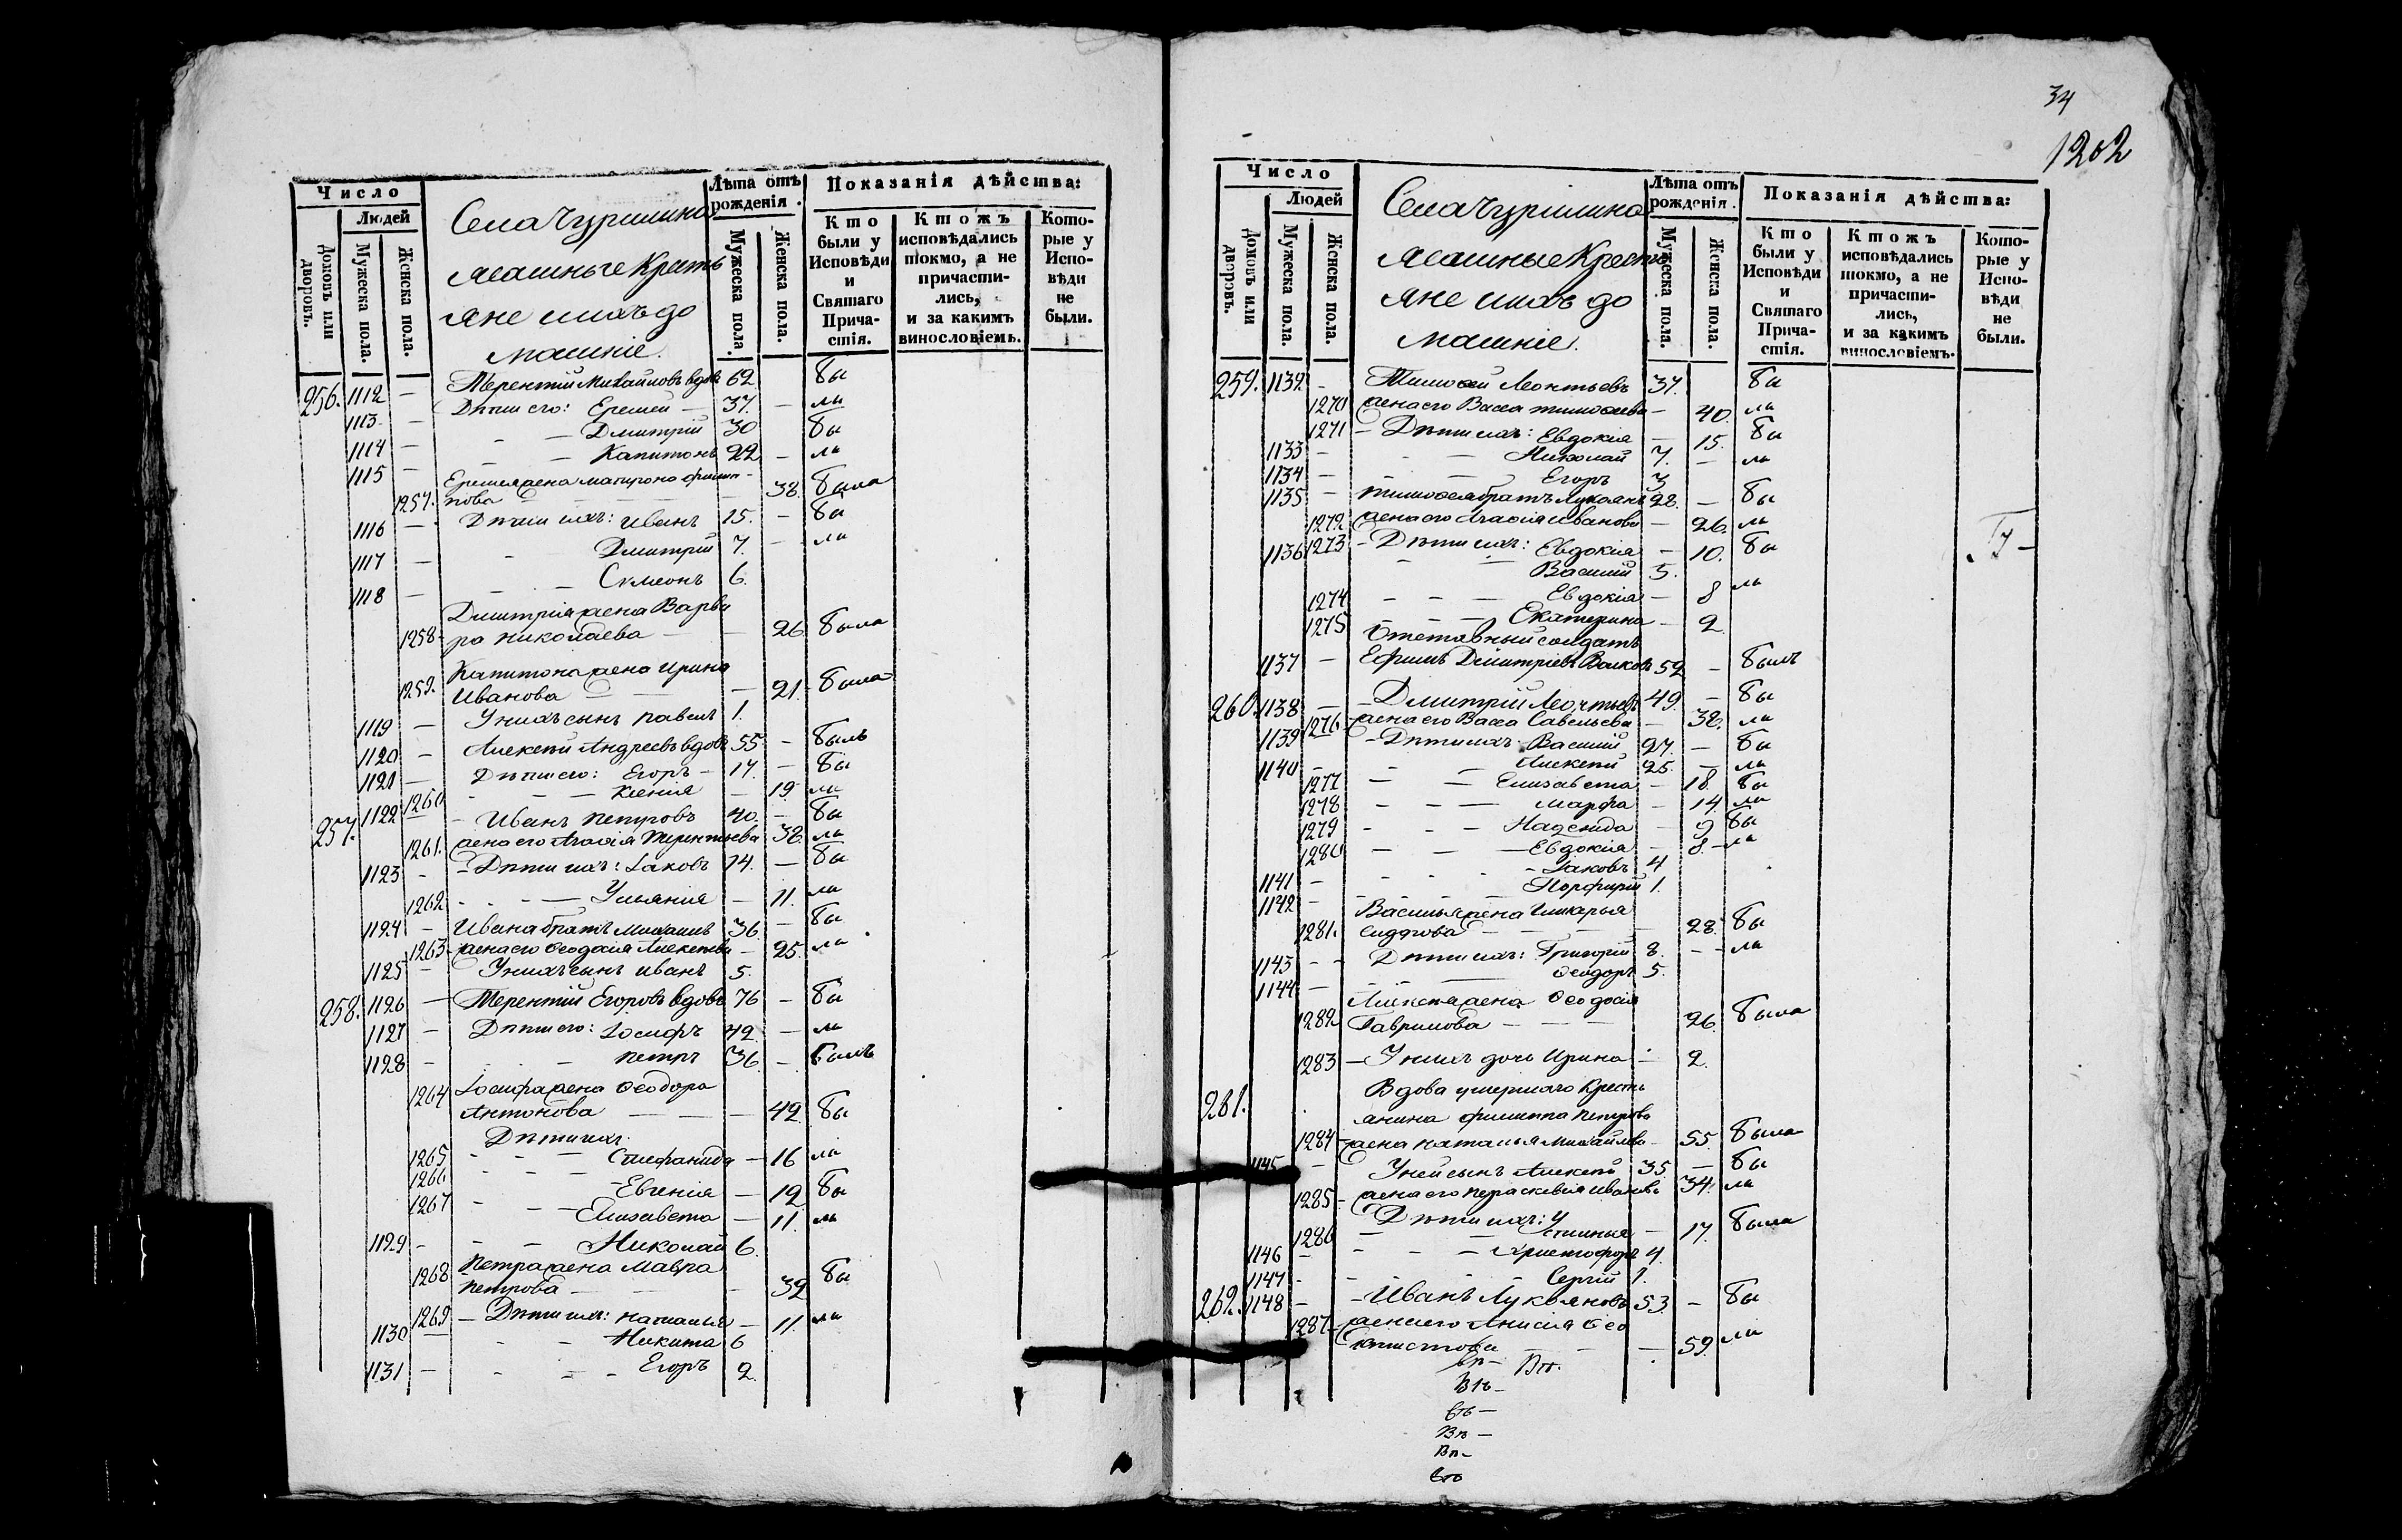 34
1202
Число
Людей
Домовъ или дворовъ.
Мужеска пола.
Женска пола.
Села Чуришина
Ясашные Кресть
яне и ихъ до
машніе.
Лѣта отъ рожденія.
Мужеска пола.
Женска пола.
Показанія дѣйства:
Кто были у Исповѣди и Святаго Прича- стія.
Ктожъ исповѣдались токмо, а не причасти- лись, и за какимъ винословіемъ.
Кото- рые у Испо- вѣди не были.
256. 1112 — Терентій Михайловъ вдовъ 62 бы
1113 — Дѣти его: Еремей — 37. — ли
1114 — Дмитрій 30 бы
1115 — Капитонъ 22 — ли
Еремея жена Матрона Филип-
1257. пова 38. была
1116 — Дѣти ихъ: Иванъ 15. — бы
1117 — Дмитрій 7. — ли
1118 — Сѵмеонъ 6.
Дмитрія жена Варва
1258 ра Николаева — 26 была
Капитона жена Ирина
1259. Иванова — 21. была
1119 — У нихъ сынъ Павелъ 1.
1120 — Алексѣй Андреевъ вдовъ 55 — былъ
1121 — Дѣти его: Егоръ — 17. — бы
1260 Ксенія — 19. ли
257. 1122 — Иванъ Петровъ 40. — бы
1261. жена его Агафія Терентьева 38. ли
1123 — Дѣти ихъ: Іаковъ 14. — бы
1262 — Ульянія — 11. ли
1124 — Ивана братъ Михаилъ 36 — бы
1263 жена его Ѳеодосія Алексѣева — 25. ли
1125 — У нихъ сынъ Иванъ 5.
258. 1126 — Терентій Егоровъ вдовъ 76 — бы
1127 — Дѣти его: Іосифъ 42. — ли
1128 — Петръ 36 — былъ
1264 Іосифа жена Ѳеодора
Антонова — 42. бы
Дѣти ихъ
1265 Стефанида — 16 ли
1266 Евгенія — 12 бы
1267 Елизавета — 11. ли
1129 — Николай 6.
1268 Петра жена Мавра
Петрова — 32 бы
1269 — Дѣти ихъ: Наталья — 11. ли
1130 — Никита 6
1131 — Егоръ 2.
Число
Людей
Домовъ или дворовъ.
Мужеска пола.
Женска пола.
Села Чуришина
Ясашные Кресть
яне и ихъ до
машніе.
Лѣта отъ рожденія.
Мужеска пола.
Женска пола.
Показанія дѣйства:
Кто были у Исповѣди и Святаго Прича- стія.
Ктожъ исповѣдались токмо, а не причасти- лись, и за какимъ винословіемъ.
Кото- рые у Испо- вѣди не были.
259. 1132. — Тимоѳей Леонтьевъ 37. бы
1270 жена его Васса Тимоѳеева — 40. ли
1271 — Дѣти ихъ: Евдокія — 15. бы
1133 — Николай 7. — ли
1134 — Егоръ 3
1135 — Тимоѳея братъ Лукоянъ 28. — бы
1272 жена его Агафія Иванова — 26. ли
1136 1273 — Дѣти ихъ: Евдокія — 10. бы
Василій 5.
1274 — Евдокія — 8 ли
1275 — Екатерина — 2
Отставный солдатъ
1137 — Ефимъ Дмитріевъ Волковъ 59 — былъ
260. 1138 — Дмитрій Леонтьевъ 49. — бы
1276 жена его Васса Савельева — 38. ли
1139 — Дѣти ихъ: Василій 27. — бы
1140 — Алексѣй 25. — ли
1277 — Елизавета — 18. бы
1278 — Марфа — 14. ли
1279 — Надежда — 9 бы
1280 — Евдокія — 8. ли
1141 — Іаковъ 4
1142 — Порфирій 1.
Василья жена Гликерья
1281. Сидорова — 28. бы
1143 — Дѣти ихъ: Григорій 8. — ли
1144 — Ѳеодоръ 5.
Алексѣя жена Ѳеодосія
1282 Гаврилова — 26. была
1283 — У нихъ дочь Ирина — 2.
261. Вдова умершаго Кресть
янина Филиппа Петрова
1284 жена Наталья Михайлова — 55. была
1145 — У ней сынъ Алексѣй 35. — бы
1285 жена его Параскевія Иванова 34. ли
Дѣти ихъ: У
1286 стинья — 17. была
1146 — Христофоръ 4.
1147 — Сергій 1.
262. 1148 — Иванъ Лукояновъ 53. — бы
1287 жена его Анисія Ѳео
ктистова — 59. ли